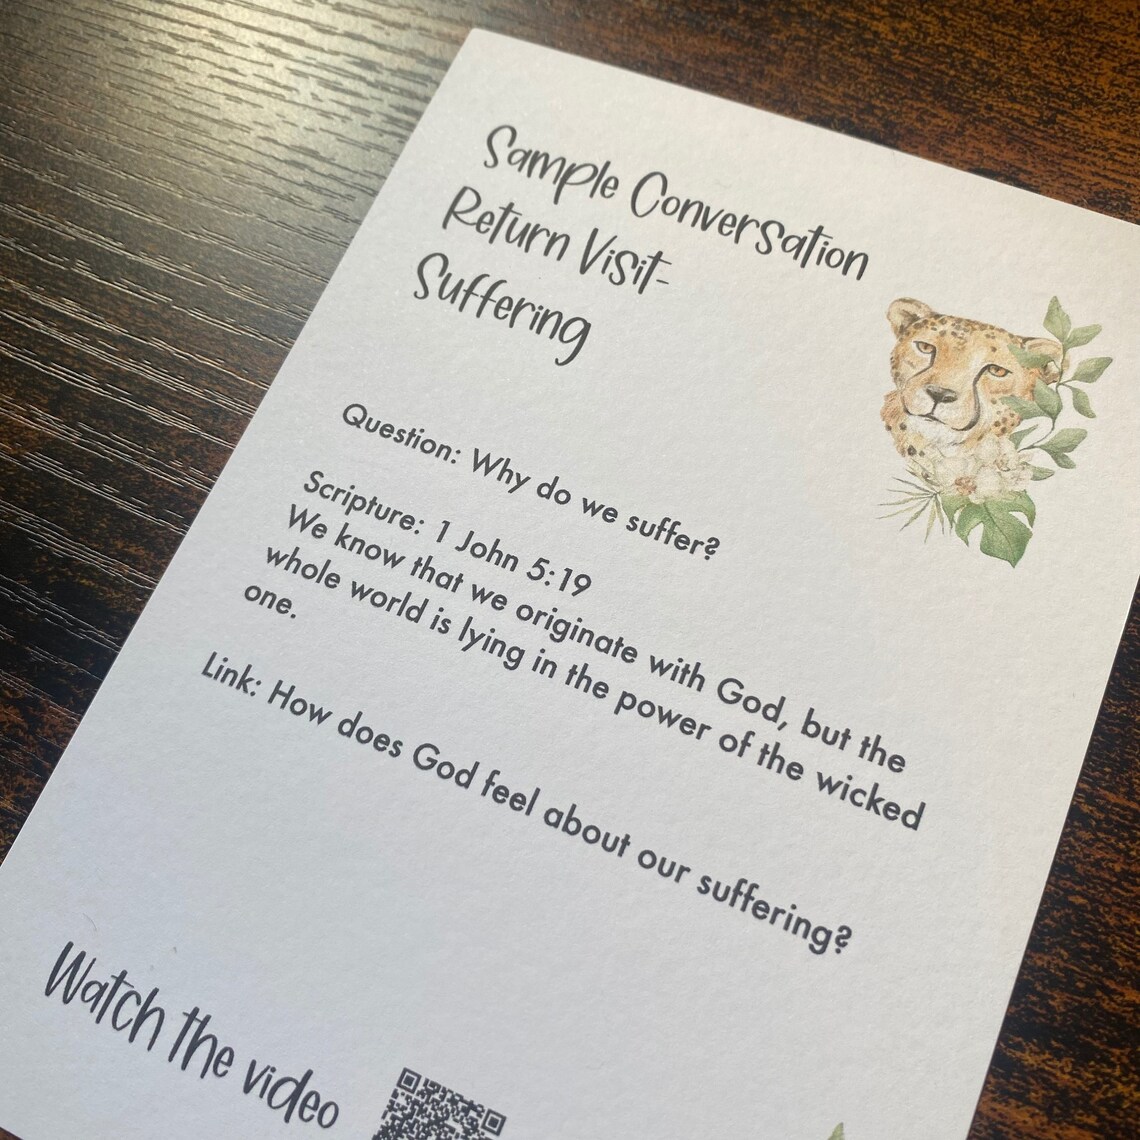 Sample Conversation
Return Visit-
Suffering
Question: Why do we suffer?
Scripture: 1 John 5:19
We know that we originate with God, but the
whole world is lying in the power of the wicked
one.
Link: How does God feel about our suffering?
Watch the video